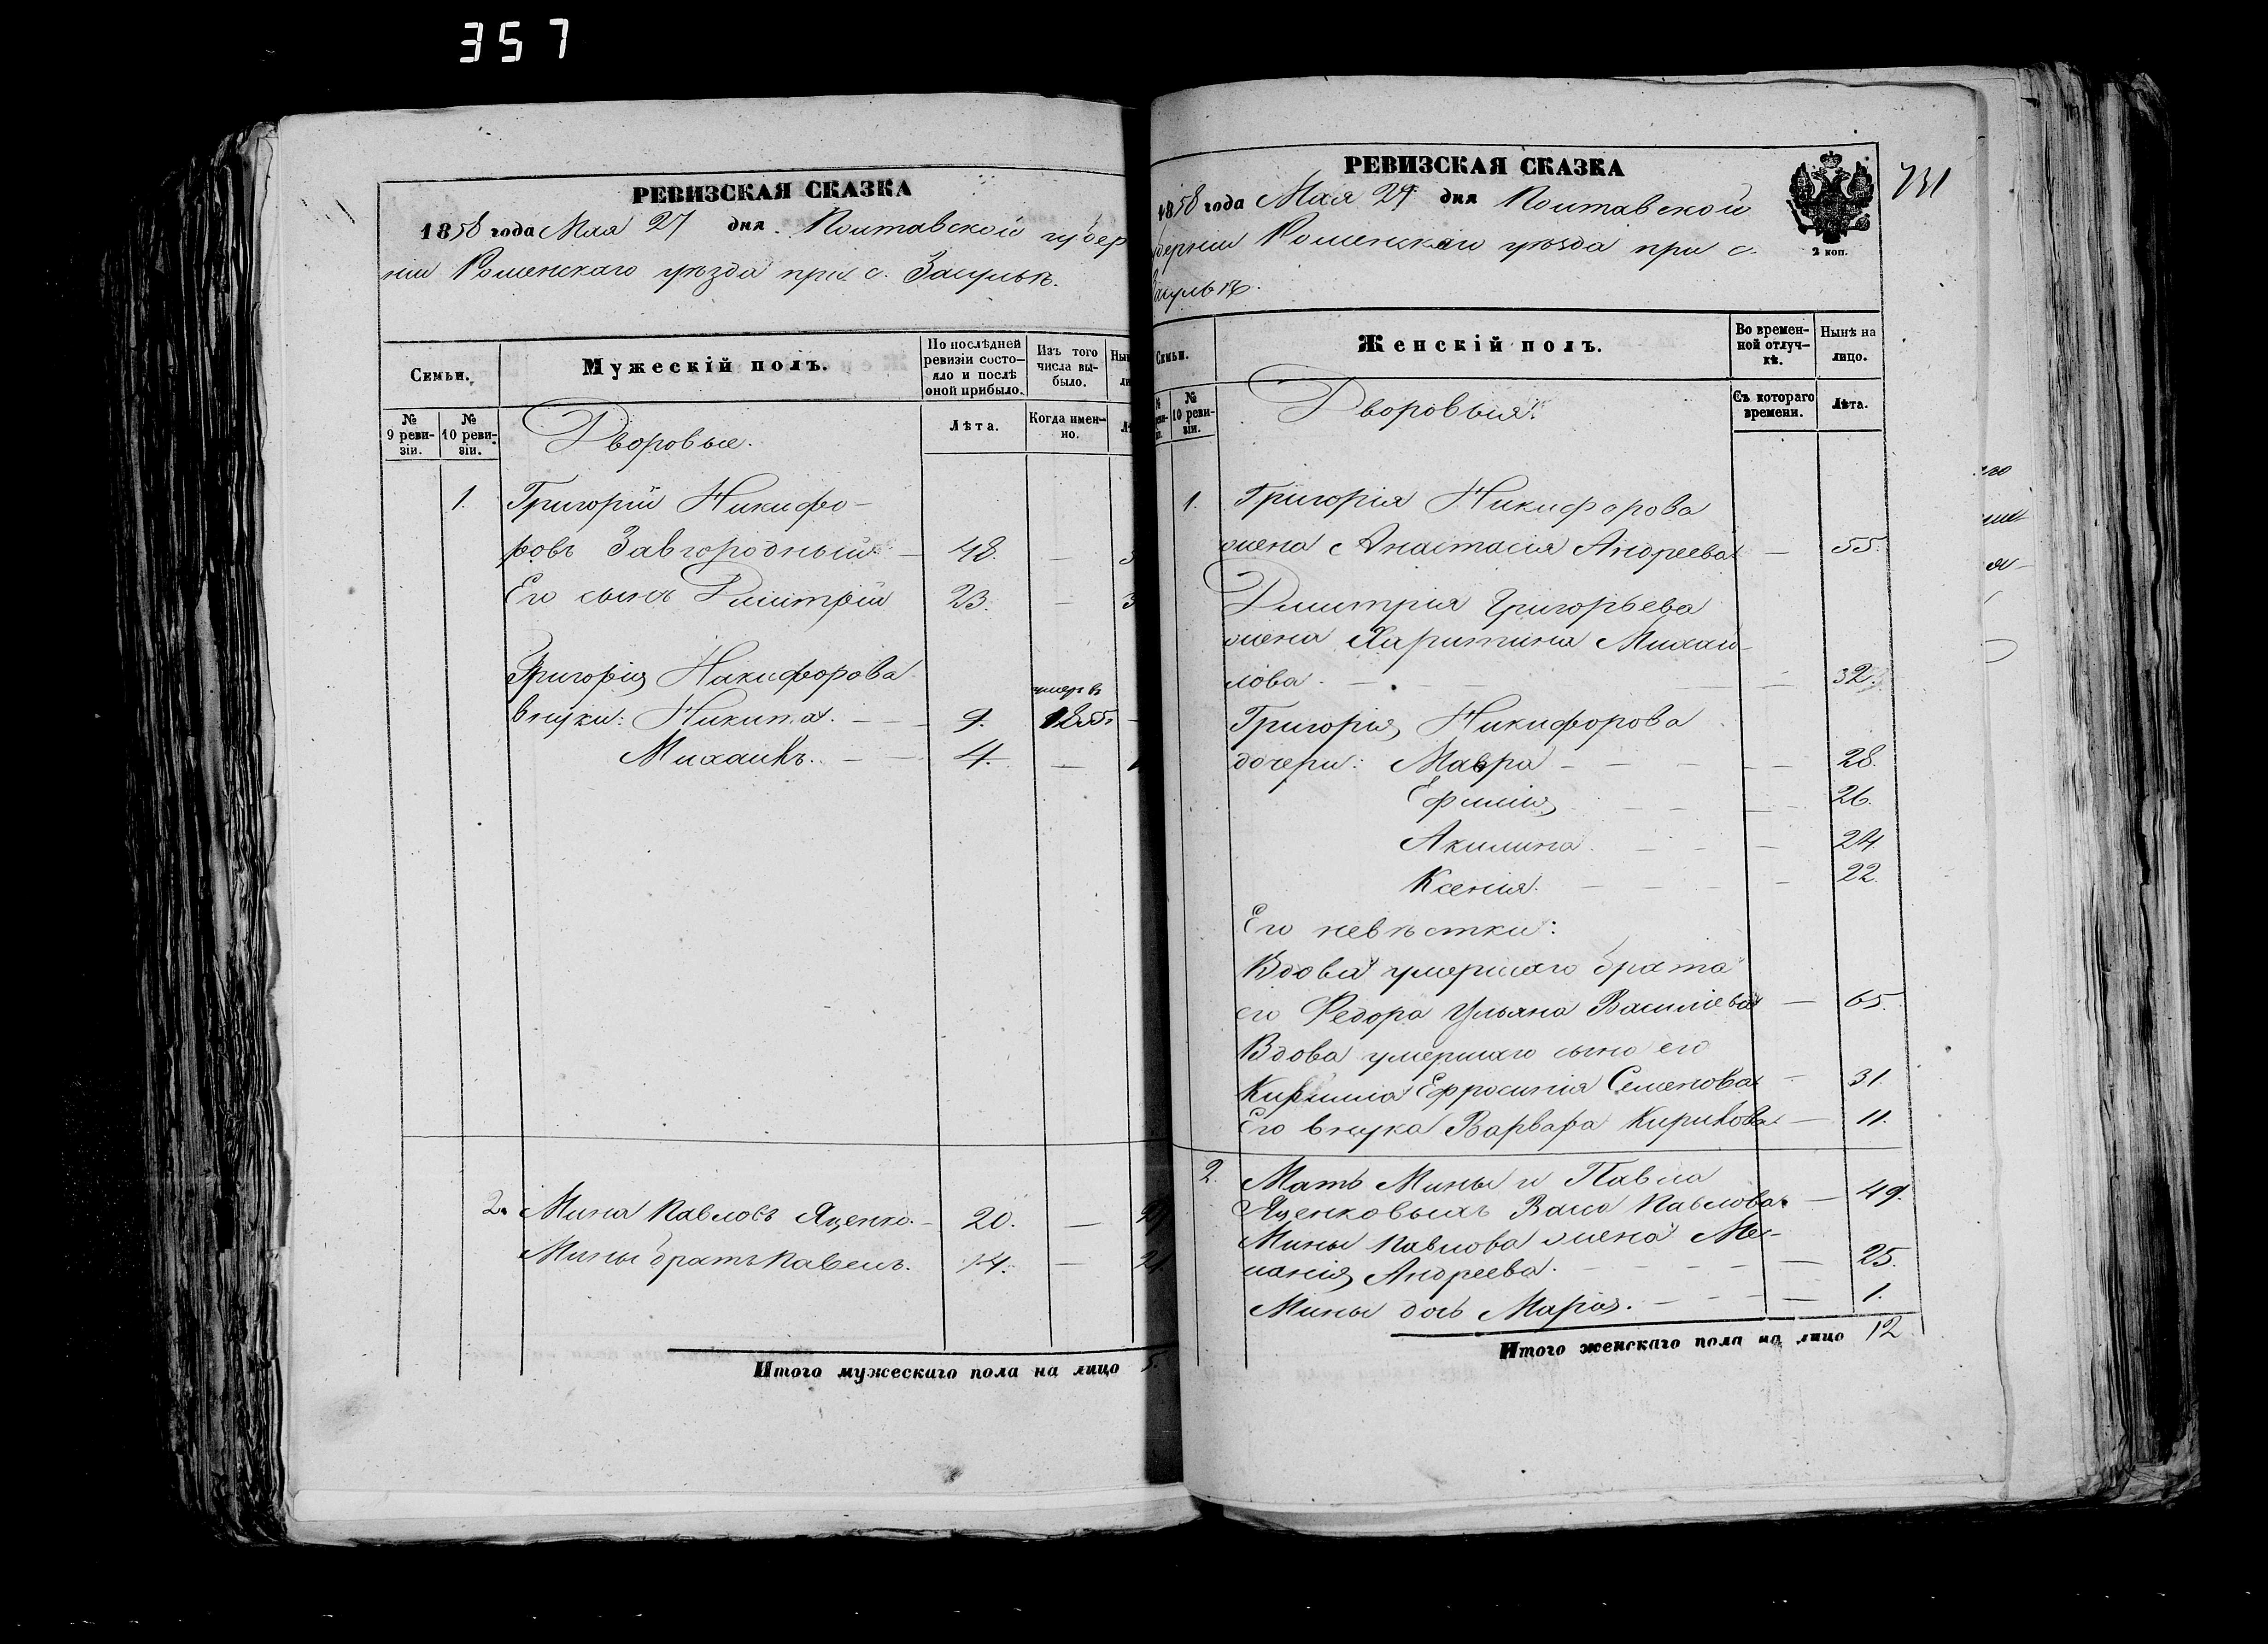 357
РЕВИЗСКАЯ СКАЗКА
1858 года Мая 27 дня Полтавской губер
ніи Роменскаго уѣзда при с. Засульѣ.
Семьи.
Мужескій полъ.
По послѣдней ревизіи состояло и послѣ оной прибыло.
Изъ того числа выбыло.
№ 9 ревизіи.
№ 10 ревизіи.
Лѣта.
Когда именно.
Дворовые.
1. Григорій Никифо-
ровъ Завгородный - 48. —
Его сынъ Дмитрій 23. —
Григорія Никифорова
внуки: Никита. — 9. умеръ въ 1855
Михаилъ. — 4. —
2. Мина Павловъ Яценко. - 20. —
Мины братъ Павелъ. 14. — 21.
Итого мужескаго пола на лицо 5.
731
РЕВИЗСКАЯ СКАЗКА
1858 года Мая 27 дня Полтавской
губерніи Роменскаго уѣзда при с.
Засульѣ.
2 коп.
Семьи.
Женскій полъ.
Во временной отлучкѣ.
Нынѣ на лицо.
№ 10 ревизіи.
Съ котораго времени.
Лѣта.
Дворовыя.
1. Григорія Никифорова
жена Анастасія Андреева — 55.
Дмитрія Григорьева
жена Харитина Михаи-
лова. — 32.
Григорія Никифорова
дочери: Мавра — 28.
Ефимія — 26.
Акилина — 24.
Ксенія. — 22.
Его невѣстки:
Вдова умершаго брата
его Федора Ульяна Василіева — 65.
Вдова умершаго сына его
Кирилла Ефросинія Семенова — 31.
Его внука Варвара Кирилова — 11.
2. Мать Мины и Павла
Яценковыхъ Васа Павлова. — 49.
Мины Павлова жена Ме-
ланія Андреева. — 25.
Мины дочь Марія. — 1.
Итого женскаго пола на лицо 12